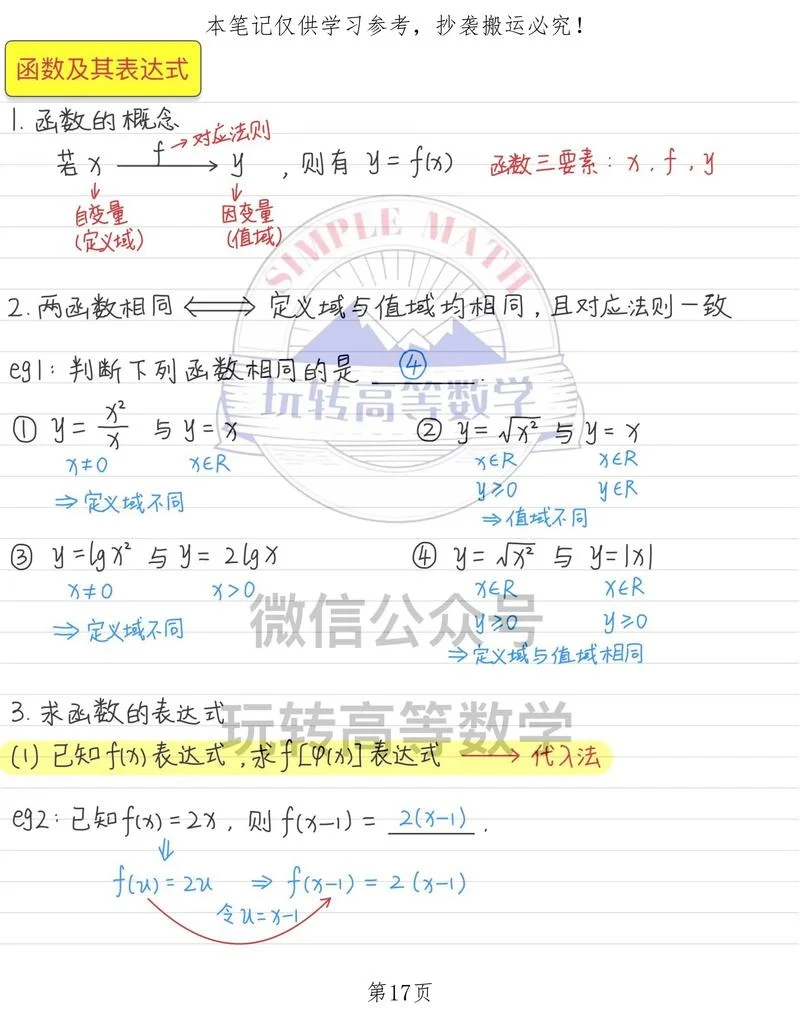 本笔记仅供学习参考，抄袭搬运必究！
函数及其表达式
1. 函数的概念
若 x —f→ y ，则有 y = f(x) 函数三要素：x , f , y
→对应法则
↓ ↓
自变量 因变量
(定义域) (值域)
SIMPLE MATH
2. 两函数相同 ⟺ 定义域与值域均相同，且对应法则一致
eg1：判断下列函数相同的是 ④ .
玩转高等数学
① y = x²/x 与 y = x ② y = √x² 与 y = x
x≠0 x∈R x∈R x∈R
y≥0 y∈R
⇒ 定义域不同 ⇒ 值域不同
③ y = lgx² 与 y = 2lgx ④ y = √x² 与 y = |x|
x≠0 x>0 x∈R x∈R
y≥0 y≥0
⇒ 定义域不同 ⇒ 定义域与值域相同
微信公众号
3. 求函数的表达式
玩转高等数学
(1) 已知 f(x) 表达式，求 f[φ(x)] 表达式 → 代入法
eg2：已知 f(x) = 2x，则 f(x-1) = 2(x-1) .
⇓
f(u) = 2u ⇒ f(x-1) = 2(x-1)
令u=x-1
第17页